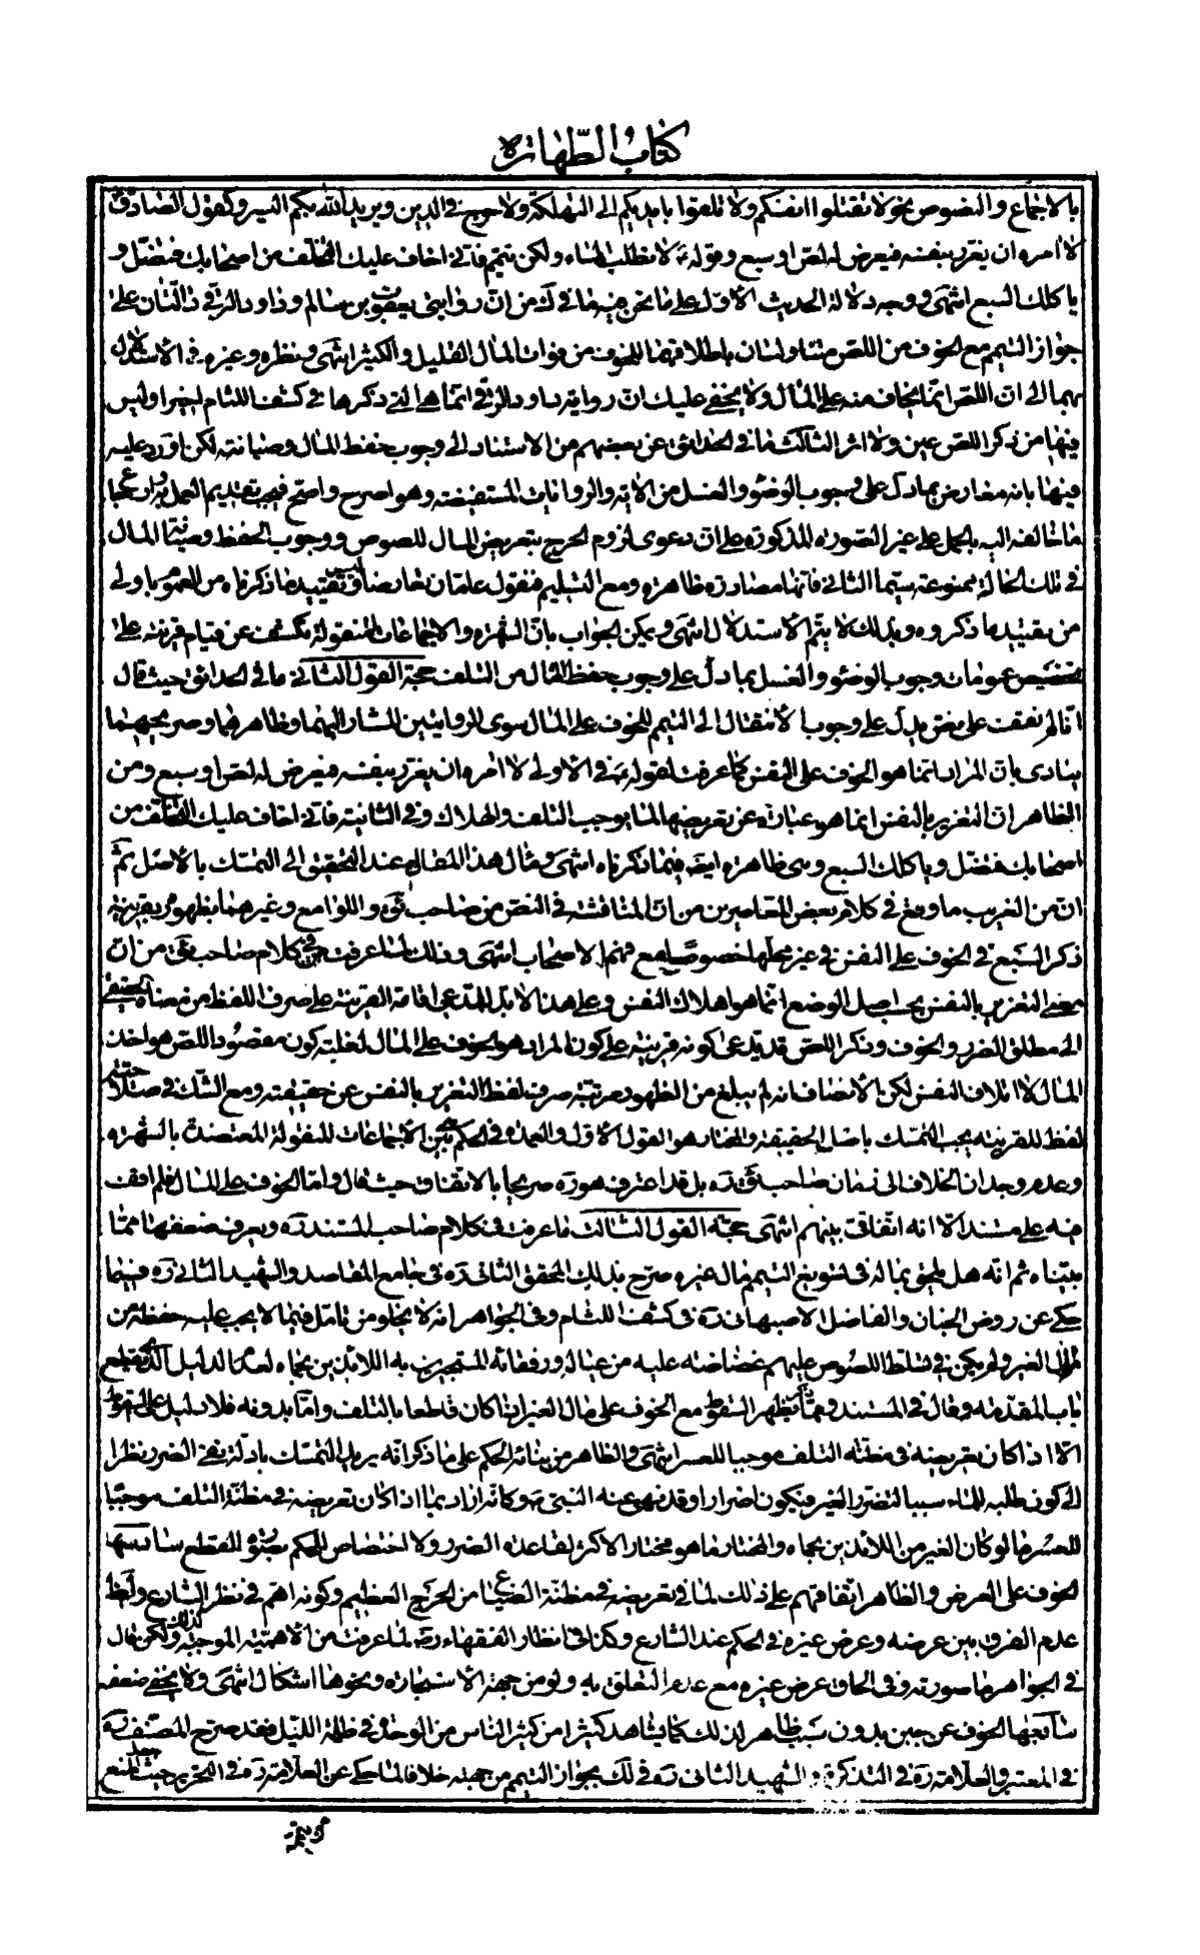 كتاب الطهارة
بالاجماع والنصوص نحو لا تقتلوا انفسكم ولا تلقوا بايديكم الى التهلكة ولا حرج في الدين ويريد الله بكم اليسر وكقول الصادق
لا امره ان يغرر بنفسه فيعرض له لص او سبع وقوله لا تطلب الماء ولكن تيمم فاني اخاف عليك التخلف من اصحابك فتضل و
ياكلك السبع انتهى ووجه دلالة الحديث الاول على ما نحن فيه ما في لك من ان روايتي يعقوب بن سالم وداود الرقي دالتان على
جواز التيمم مع الخوف من اللص متناولتان باطلاقهما للخوف من فوات المال القليل والكثير انتهى ونظره وغيره في الاستدلال
بهما الى ان اللص انما يخاف منه على المال ولا يخفى عليك ان رواية داود الرقي انما هي التي ذكرها في كشف اللثام اخيرا وليس
فيها من ذكر اللص عين ولا اثر الثالث ما في الحدائق عن بعضهم من الاستناد الى وجوب حفظ المال وصيانته لكن اورد عليه
فيها بانه معارض بما دل على وجوب الوضوء والغسل من الاية والروايات المستفيضة وهو اصرح واصح فيجب تقديم العمل به وارجاع
ما خالفه اليه بالحمل على غير الصورة المذكورة على ان دعوى لزوم الحرج بتعريض المال للصوص ووجوب الحفظ وصيانة المال
في تلك الحالة ممنوعة سيما الثاني فانها مصادرة ظاهرة ومع التسليم فنقول عامان تعارضا وتقييد ما ذكرناه من العموم باولى
من تقييد ما ذكروه وبذلك لا يتم الاستدلال انتهى ويمكن الجواب بان الشهرة والاجماعات المنقولة تكشف عن قيام قرينة على
تخصيص عمومات وجوب الوضوء والغسل بما دل على وجوب حفظ المال من التلف حجة القول الثاني ما في الحدائق حيث قال
انا لم نقف على نص يدل على وجوب الانتقال الى التيمم للخوف على المال سوى الروايتين المشار اليهما وظاهرهما وصريحهما
ينادى بان المراد انما هو الخوف على النفس كما عرفت لقوله في الاولى لا امره ان يغرر بنفسه فيعرض له لص او سبع ومن
الظاهر ان التغرير بالنفس انما هو عبارة عن تعريضها لما يوجب التلف والهلاك وفي الثانية فاني اخاف عليك التخلف من
اصحابك فتضل وياكلك السبع وهى ظاهرة ايضا فيما ذكرناه انتهى ومال هذا المقال عند التحقيق الى التمسك بالاصل ثم
ان من الغريب ما وقع في كلام بعض المعاصرين من ان المناقشة في النص من صاحب واللوامع وغيرهما بظهوره بقرينة
ذكر السبع في الخوف على النفس في غير محلها خصوصا مع فهم الاصحاب انتهى وذلك لما عرفت في كلام صاحب من ان
معنى التغرير بالنفس بحسب اصل الوضع انما هو اهلاك النفس وعلى هذا لا بد للمدعي اقامة القرينة على صرف اللفظ من معناه الحقيقي
الى مطلق الضرر والخوف وذكر اللص قد يدعى كونه قرينة على كون المراد هو الخوف على المال لغلبة كون مقصود اللص هو اخذ
المال لا اتلاف النفس لكن الانصاف انه لم يبلغ من الظهور مرتبة صرف لفظ التغرير بالنفس عن حقيقته ومع الشك في صلاحية
لفظ للقرينة يجب التمسك باصل الحقيقة والمختار هو القول الاول والعمدة في الحكم هي الاجماعات المنقولة المعتضدة بالشهرة
وعدم وجدان الخلاف الى زمان صاحب بل قد اعترف هو ره صريحا بالاتفاق حيث قال واما الخوف على المال فلم اقف
فيه على مستند الا انه اتفاقي بينهم انتهى حجة القول الثالث ما عرفت في كلام صاحب المستند ره ويعرف ضعفها مما
بيناه ثم انه هل يلحق بماله في تسويغ التيمم مال غيره صرح بذلك المحقق الثاني ره في جامع المقاصد والشهيد الثاني ره فيما
حكى عن روض الجنان والفاضل الاصبهاني ره في كشف اللثام وفي الجواهر انه لا يخلو من تامل فيما لا يجب عليه حفظه من
مال الغير ولم يكن في تسلط اللصوص عليهم غضاضة عليه من عياله ورفقائه المستجيرين به اللائذين بجاه لعدم الدليل الذي يقطع
باب المقدمة وقال في المستند ومما ذكر يظهر السقوط مع الخوف على مال الغير اذا كان قاطعا بالتلف واما بدونه فلا دليل على السقوط
الا اذا كان تعريضه في مظنة التلف موجبا للعسر انتهى والظاهر من بنائه الحكم على ما ذكر انه يريد التمسك بادلة نفي الضرر نظرا
الى كون طلبه للماء سببا لتضرر الغير فيكون اضرارا وقد نهى عنه النبي وكانه اراد بما اذا كان تعريضه في مظنة التلف موجبا
للعسر ما لو كان الغير من اللائذين بجاه والمختار ما هو مختار الاكثر لقاعدة الضرر ولا اختصاص للحكم بصورة القطع سادسها
الخوف على العرض والظاهر اتفاقهم على ذلك لما في تعريضه في مظنة الضياع من الحرج العظيم وكونه اهم في نظر الشارع ولحاظ
عدم الفرق بين عرضه وعرض غيره في الحكم عند الشارع وكذا في انظار الفقهاء رض لما عرفت من الاهمية الموجبة لذلك ولكن قال
في الجواهر ما صورته وفي الحاق عرض غيره مع عدم التعلق به ولو من جهة الاستجارة ونحوها اشكال انتهى ولا يخفى ضعفه
سابعها الخوف عن جبن بدون سبب ظاهر لذلك كما يشاهد كثيرا من كثير الناس من الوحدة في ظلمة الليل فقد صرح المصنف ره
في المعتبر والعلامة ره في التذكرة والشهيد الثاني ره في لك بجواز التيمم من جهته خلافا لما حكى عن العلامة ره في التحرير حيث جعل المنع